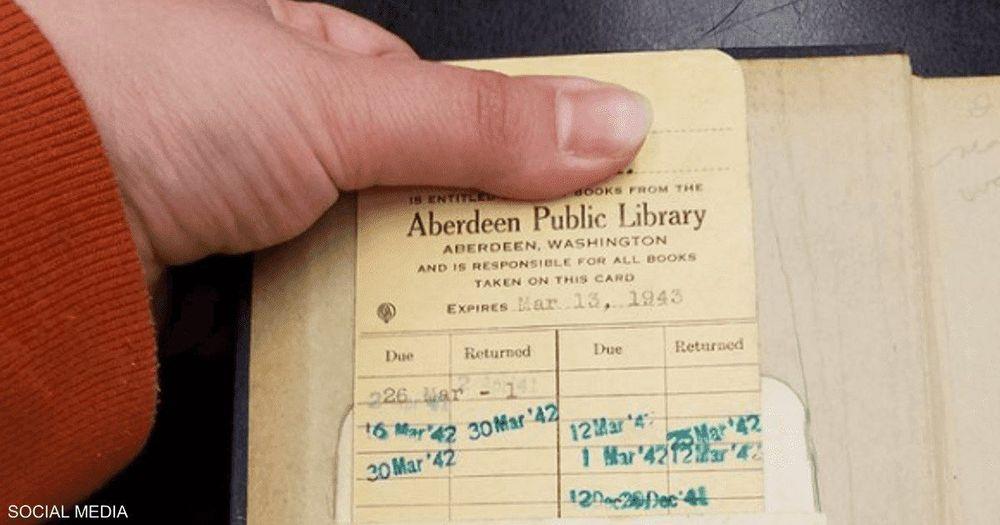 IS ENTITLED BOOKS FROM THE
Aberdeen Public Library
ABERDEEN, WASHINGTON
AND IS RESPONSIBLE FOR ALL BOOKS
TAKEN ON THIS CARD
EXPIRES Mar 13, 1943
Due Returned Due Returned
26 Mar - 1
16 Mar '42 30 Mar '42 12 Mar '4 Mar '42
30 Mar '42 1 Mar '42 12 Mar '42
12 Dec 29 Dec '41
SOCIAL MEDIA